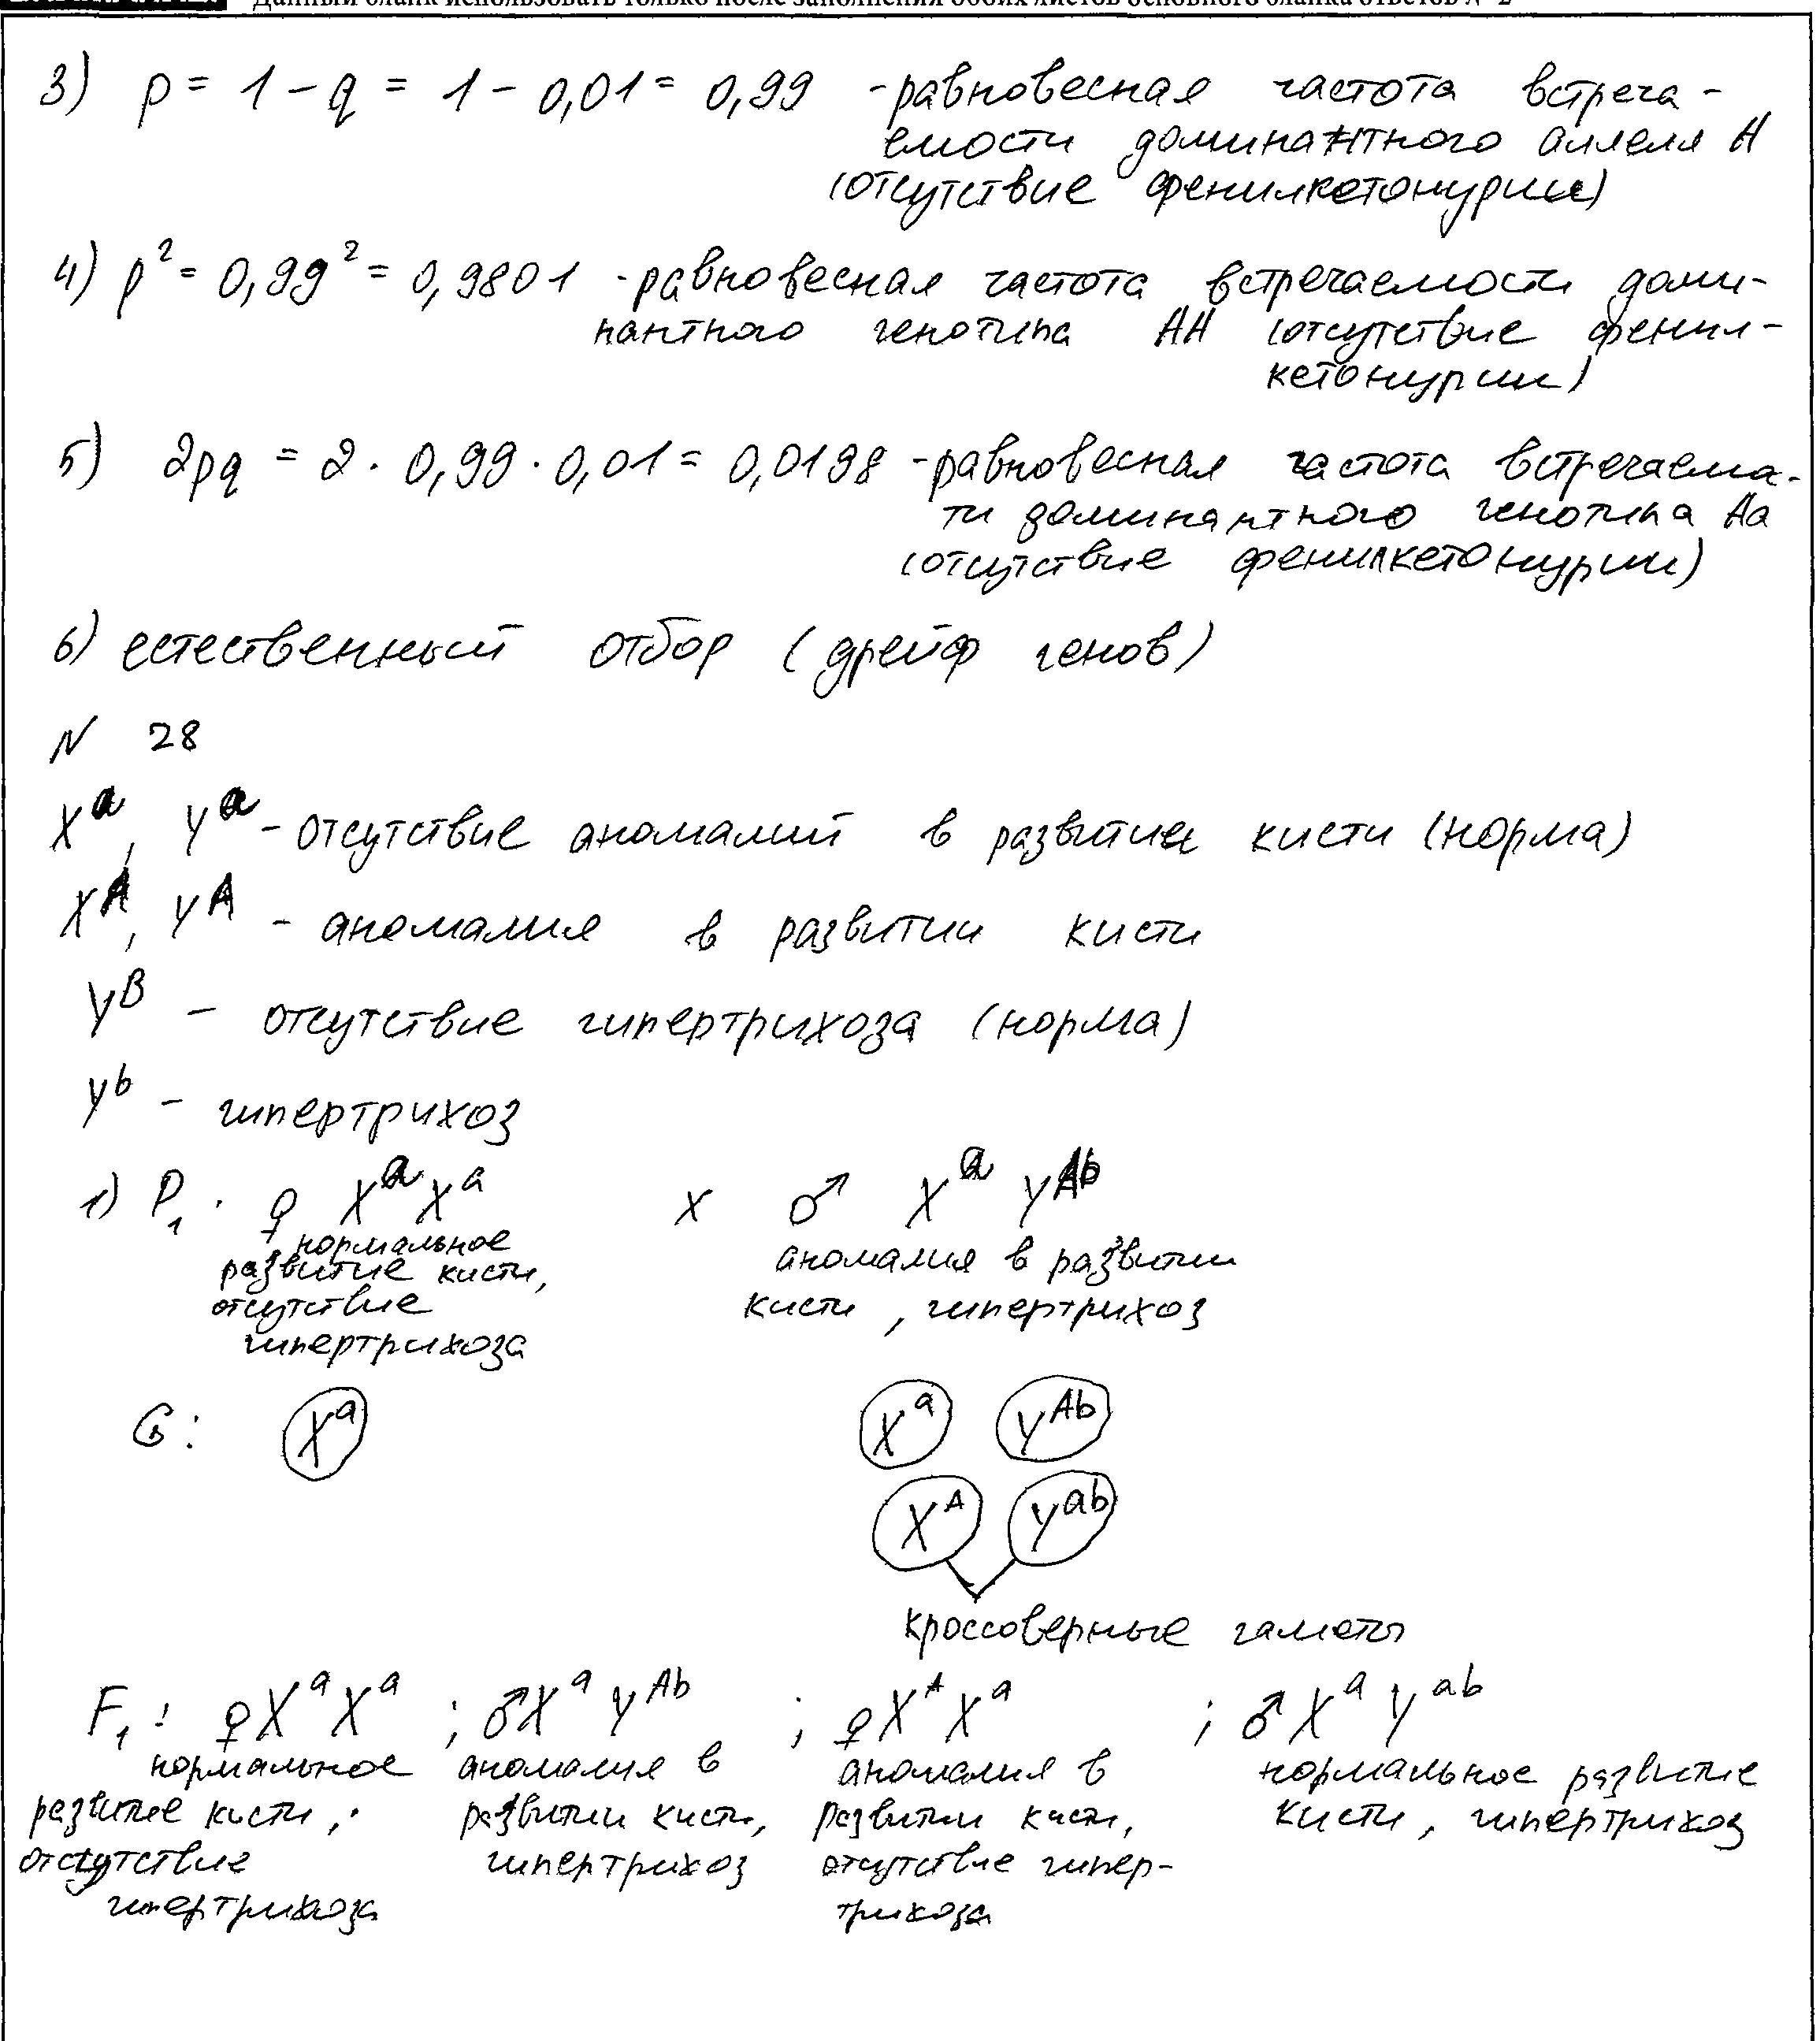 Данный бланк использовать только после заполнения обоих листов основного бланка ответов № 2
3) p = 1 - q = 1 - 0,01 = 0,99 - равновесная частота встреча-
емости доминантного аллеля А
(отсутствие фенилкетонурии)
4) p² = 0,99² = 0,9801 - равновесная частота встречаемости доми-
нантного генотипа АА (отсутствие фенил-
кетонурии)
5) 2pq = 2 · 0,99 · 0,01 = 0,0198 - равновесная частота встречаемос-
ти доминантного генотипа Аа
(отсутствие фенилкетонурии)
6) естественный отбор (дрейф генов)
N 28
Xᵃ, Yᵃ - отсутствие аномалий в развитии кисти (норма)
Xᴬ, Yᴬ - аномалия в развитии кисти
Yᴮ - отсутствие гипертрихоза (норма)
Yᵇ - гипертрихоз
1) P₁ : ♀ XᵃXᵃ x ♂ XᵃYᴬᵇ
нормальное развитие кисти, отсутствие гипертрихоза
аномалия в развитии кисти, гипертрихоз
G: Xᵃ Xᵃ Yᴬᵇ
Xᴬ Yᵃᵇ
кроссоверные гаметы
F₁: ♀XᵃXᵃ ; ♂XᵃYᴬᵇ ; ♀XᴬXᵃ ; ♂XᵃYᵃᵇ
нормальное аномалия в аномалия в нормальное развитие
развитие кисти, развитии кисти, развитии кисти, кисти, гипертрихоз
отсутствие гипертрихоз отсутствие гипер-
гипертрихоза трихоза